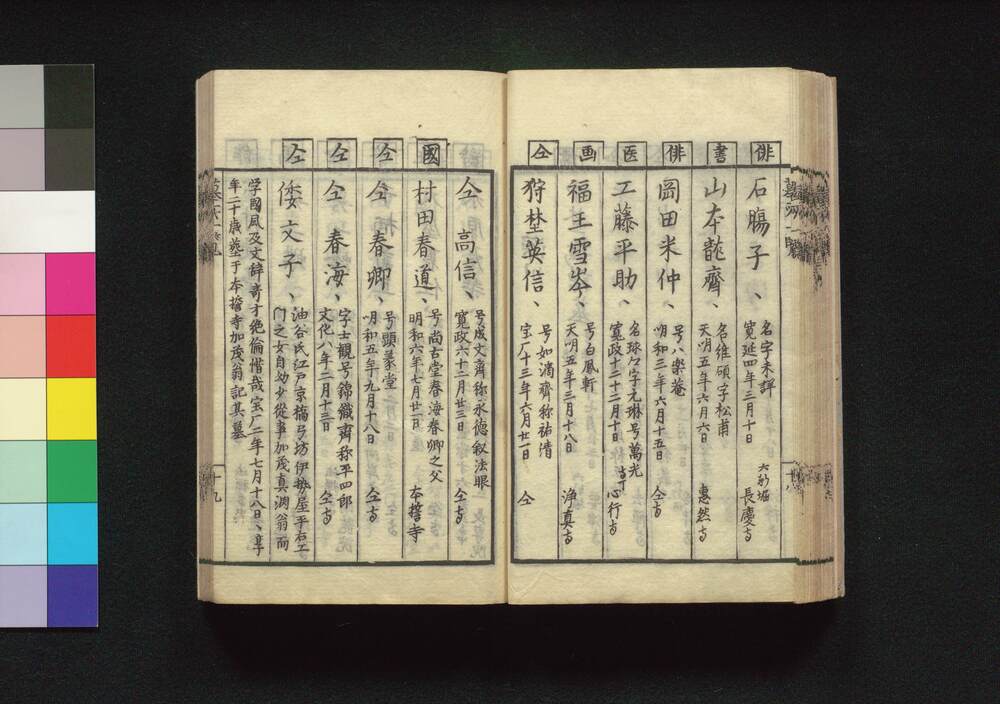 俳
石膓子、
名字未詳
寛延四年三月十日
長慶寺
書
山本龍齋、
名維碩字松甫
天明五年六月六日
惠然寺
俳
岡田米仲、
号八樂菴
明和三年六月十五日
仝寺
医
工藤平助、
名球卿字元琳号萬光
寛政十二十二月十日
心行寺
画
福王雪岑、
号白鳳軒
天明五年三月十八日
浄真寺
仝
狩埜英信、
号如滴齋称祐清
宝厂十三年六月廿一日
仝
仝高信、
号成文齋称永德叙法眼
寛政六十二月廿三日
仝寺
國
村田春道、
号尚古堂春海春卿之父
明和六年七月廿一日
本誓寺
仝
仝春卿、
号頭篆堂
明和五年九月十八日
仝寺
仝
仝春海、
字士觀号錦織齋称平四郎
文化八年二月十三日
仝寺
仝
倭文子、
油谷氏江戸京橋弓坊伊勢屋平右エ
門之女自幼少從事加茂真渕翁而
学國風及文辞奇才絶倫惜哉宝厂二年七月十八日、享
年二十歳塟于本誓寺加茂翁記其墓
十九